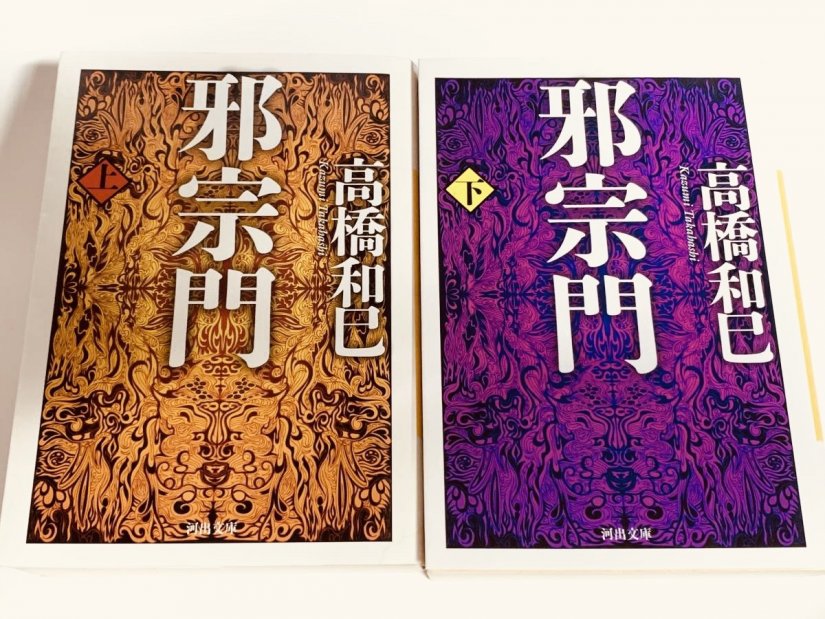 邪宗門
上
高橋和巳
Kazumi Takahashi
河出文庫
邪宗門
下
高橋和巳
Kazumi Takahashi
河出文庫